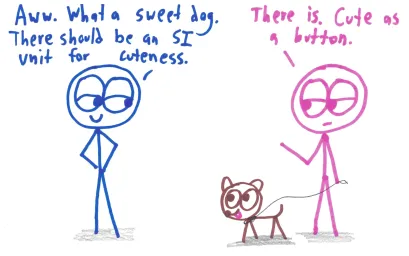 Aww. What a sweet dog.
There should be an SI
unit for cuteness.
There is. Cute as
a button.